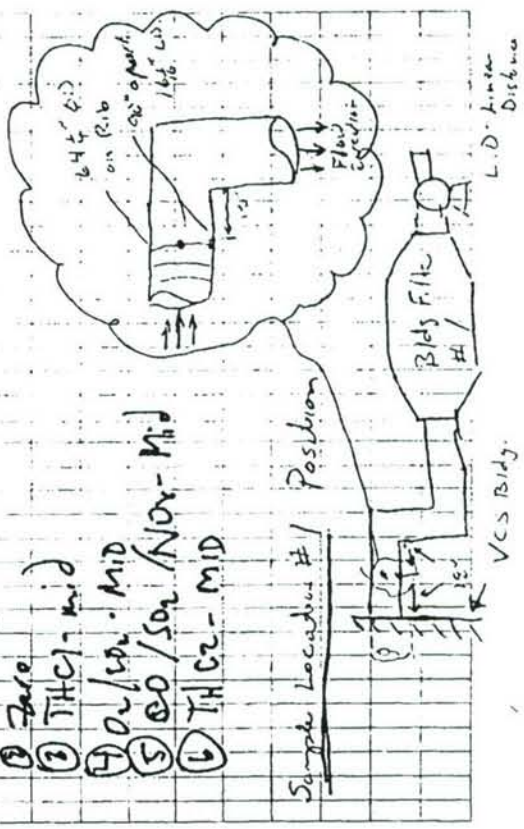 ② Zero
③ THC1-mid
④ O2/CO2-MID
⑤ CO/SO2/NOx-Mid
⑥ THC2-MID
Sample Location #1 Position
on Rib
Flow
Direction
Bldg Filter
#1
VCS Bldg.
L.D-Linear
Distance